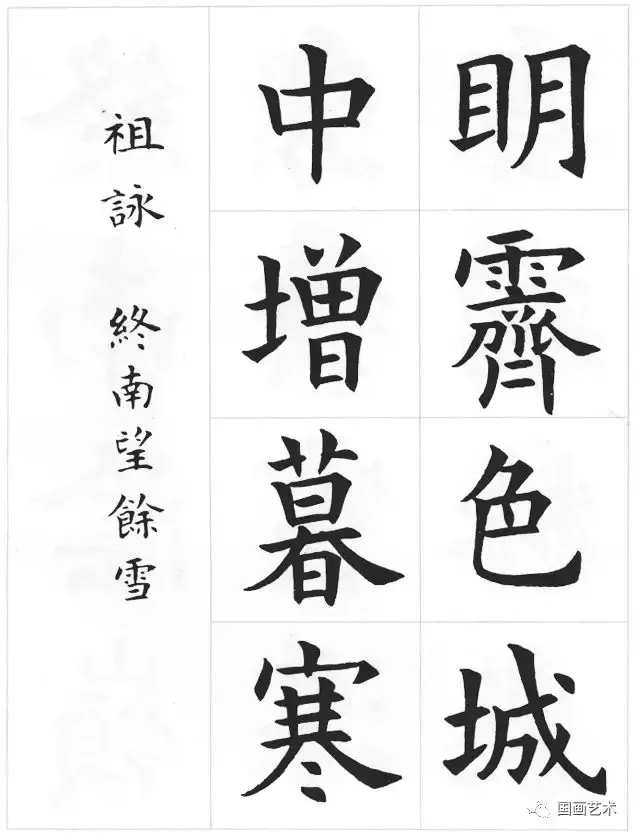 明霽色城
中增暮寒
祖詠 終南望餘雪
国画艺术